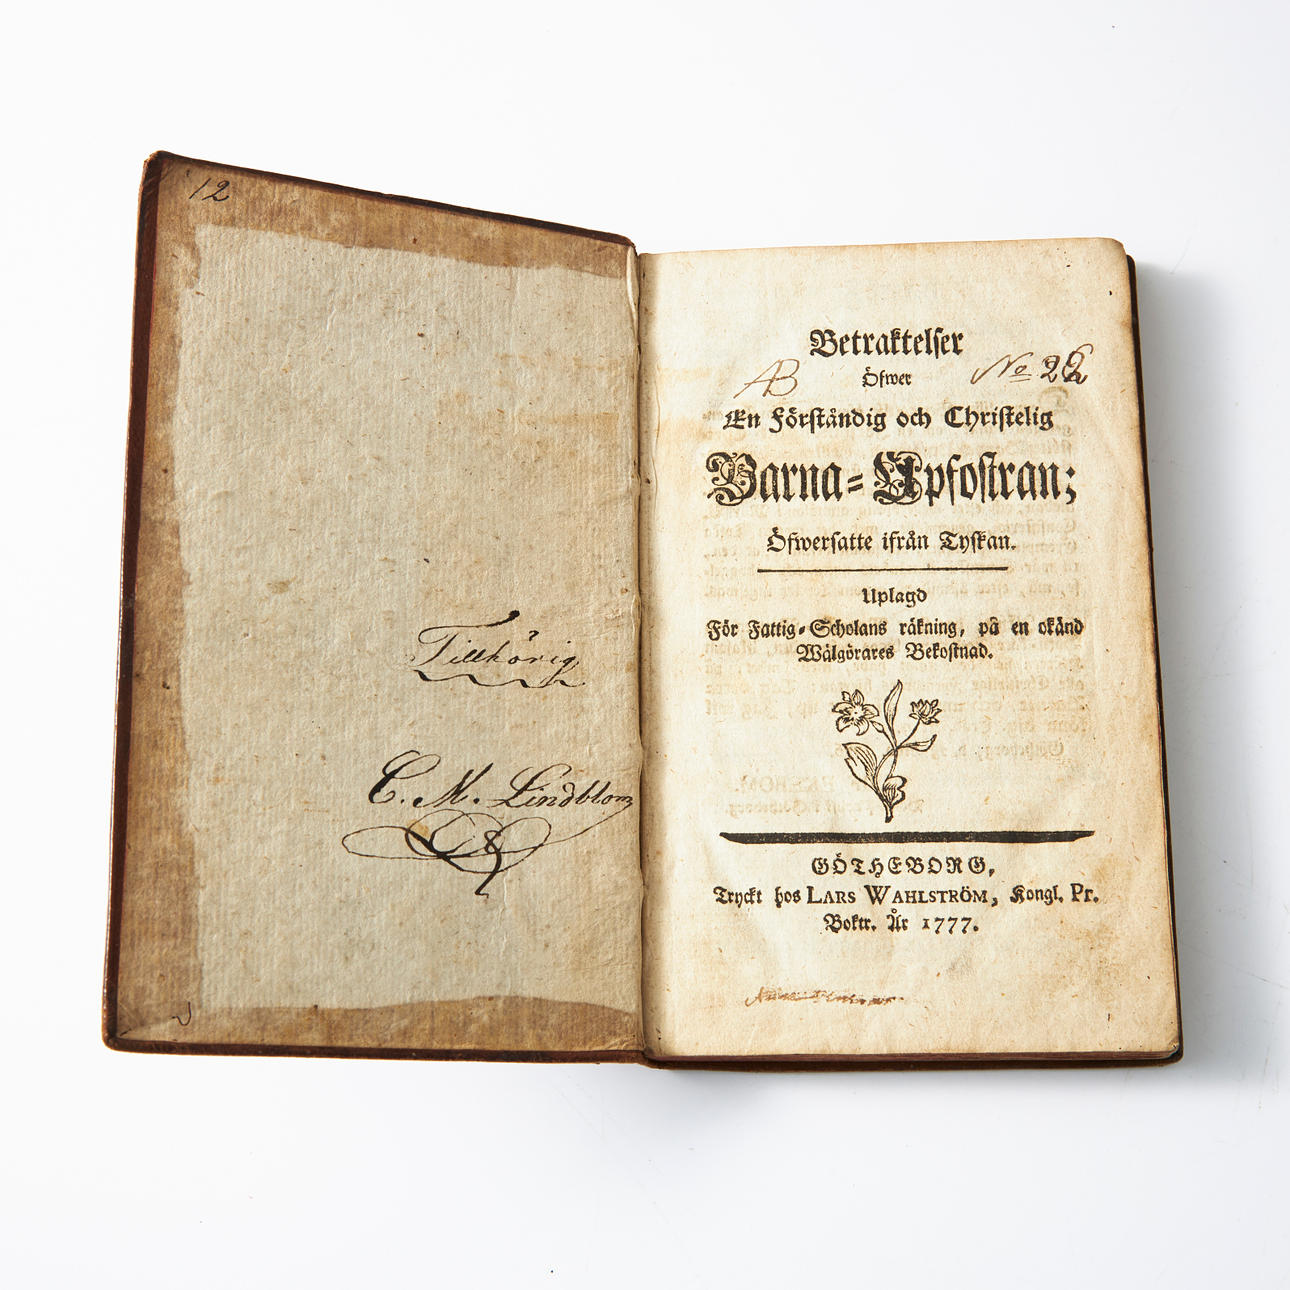 12
Tillhörig
C. M. Lindblom
Betraktelser
AB Öfwer No 22
En Förståndig och Christelig
Barna-Upfostran;
Öfwersatte ifrån Tyskan.
Uplagd
För Fattig-Scholans räkning, på en okänd
Wälgörares Bekostnad.
GÖTHEBORG,
Tryckt hos LARS WAHLSTRÖM, Kongl. Pr.
Boktr. År 1777.